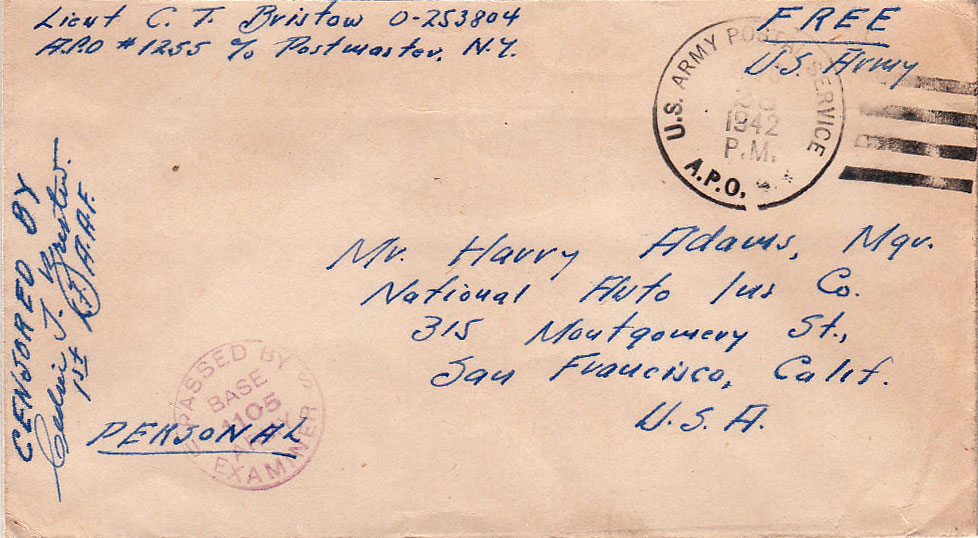 Lieut C. T. Bristow O-253804
A.P.O #1255 c/o Postmaster, N.Y.
FREE
U.S. Army
U.S. ARMY POSTAL SERVICE
1942
P.M.
A.P.O.
Mr. Harry Adams, Mgr.
National Auto Ins Co.
315 Montgomery St.,
San Francisco, Calif.
U.S.A.
CENSORED BY
T. Bristow
1st Lt. A.A.F.
PASSED BY
BASE
1105
ARMY
EXAMINER
PERSONAL